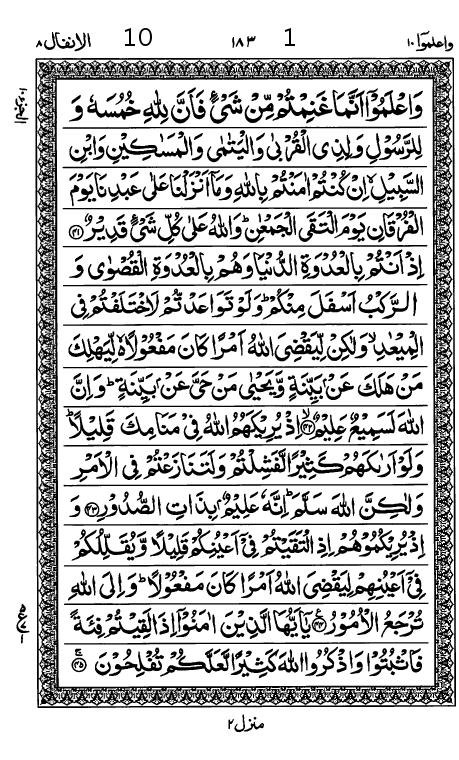 واعلموآ ١٠ 1 ١٨٣ 10 الانفال ٨
الجزء ١٠
وَاعْلَمُوْۤا اَنَّمَا غَنِمْتُمْ مِّنْ شَیْءٍ فَاَنَّ لِلّٰهِ خُمُسَهٗ وَ
لِلرَّسُوْلِ وَلِذِی الْقُرْبٰی وَالْیَتٰمٰی وَالْمَسٰكِیْنِ وَابْنِ
السَّبِیْلِ ۙ اِنْ كُنْتُمْ اٰمَنْتُمْ بِاللّٰهِ وَمَاۤ اَنْزَلْنَا عَلٰی عَبْدِنَا یَوْمَ
الْفُرْقَانِ یَوْمَ الْتَقَی الْجَمْعٰنِ ؕ وَاللّٰهُ عَلٰی كُلِّ شَیْءٍ قَدِیْرٌ ﴿۴۱﴾
اِذْ اَنْتُمْ بِالْعُدْوَةِ الدُّنْیَا وَهُمْ بِالْعُدْوَةِ الْقُصْوٰی وَ
الرَّكْبُ اَسْفَلَ مِنْكُمْ ؕ وَلَوْ تَوَاعَدْتُّمْ لَاخْتَلَفْتُمْ فِی
الْمِیْعٰدِ ۙ وَلٰكِنْ لِّیَقْضِیَ اللّٰهُ اَمْرًا كَانَ مَفْعُوْلًا ۙ۬ لِّیَهْلِكَ
مَنْ هَلَكَ عَنْۢ بَیِّنَةٍ وَّیَحْیٰی مَنْ حَیَّ عَنْۢ بَیِّنَةٍ ؕ وَاِنَّ
اللّٰهَ لَسَمِیْعٌ عَلِیْمٌ ﴿ۙ۴۲﴾ اِذْ یُرِیْكَهُمُ اللّٰهُ فِیْ مَنَامِكَ قَلِیْلًا ؕ
وَلَوْ اَرٰىكَهُمْ كَثِیْرًا لَّفَشِلْتُمْ وَلَتَنَازَعْتُمْ فِی الْاَمْرِ
وَلٰكِنَّ اللّٰهَ سَلَّمَ ؕ اِنَّهٗ عَلِیْمٌۢ بِذَاتِ الصُّدُوْرِ ﴿۴۳﴾ وَ
اِذْ یُرِیْكُمُوْهُمْ اِذِ الْتَقَیْتُمْ فِیْۤ اَعْیُنِكُمْ قَلِیْلًا وَّیُقَلِّلُكُمْ
فِیْۤ اَعْیُنِهِمْ لِیَقْضِیَ اللّٰهُ اَمْرًا كَانَ مَفْعُوْلًا ؕ وَاِلَی اللّٰهِ
تُرْجَعُ الْاُمُوْرُ ﴿۴۴﴾ یٰۤاَیُّهَا الَّذِیْنَ اٰمَنُوْۤا اِذَا لَقِیْتُمْ فِئَةً
فَاثْبُتُوْا وَاذْكُرُوا اللّٰهَ كَثِیْرًا لَّعَلَّكُمْ تُفْلِحُوْنَ ﴿ۚ۴۵﴾
منزل ٢